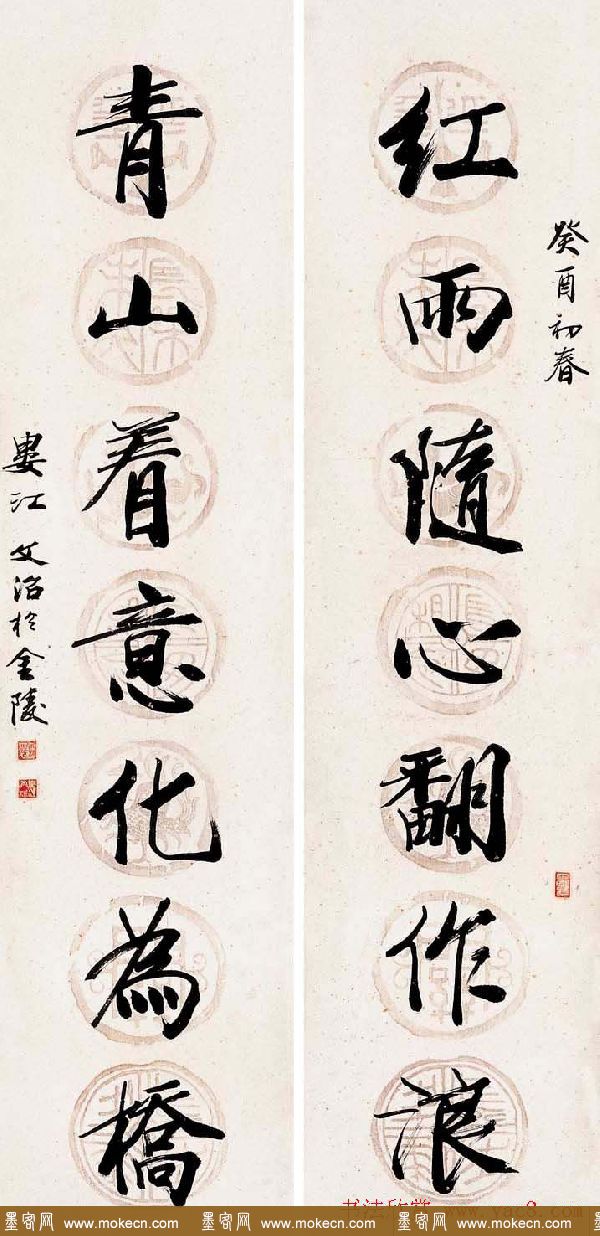 癸酉初春
红雨隨心翻作浪
青山着意化為橋
婁江文治於金陵
书法欣赏 www.yac8.com
墨客网 www.mokecn.com 墨客网 www.mokecn.com 墨客网 www.mokecn.com